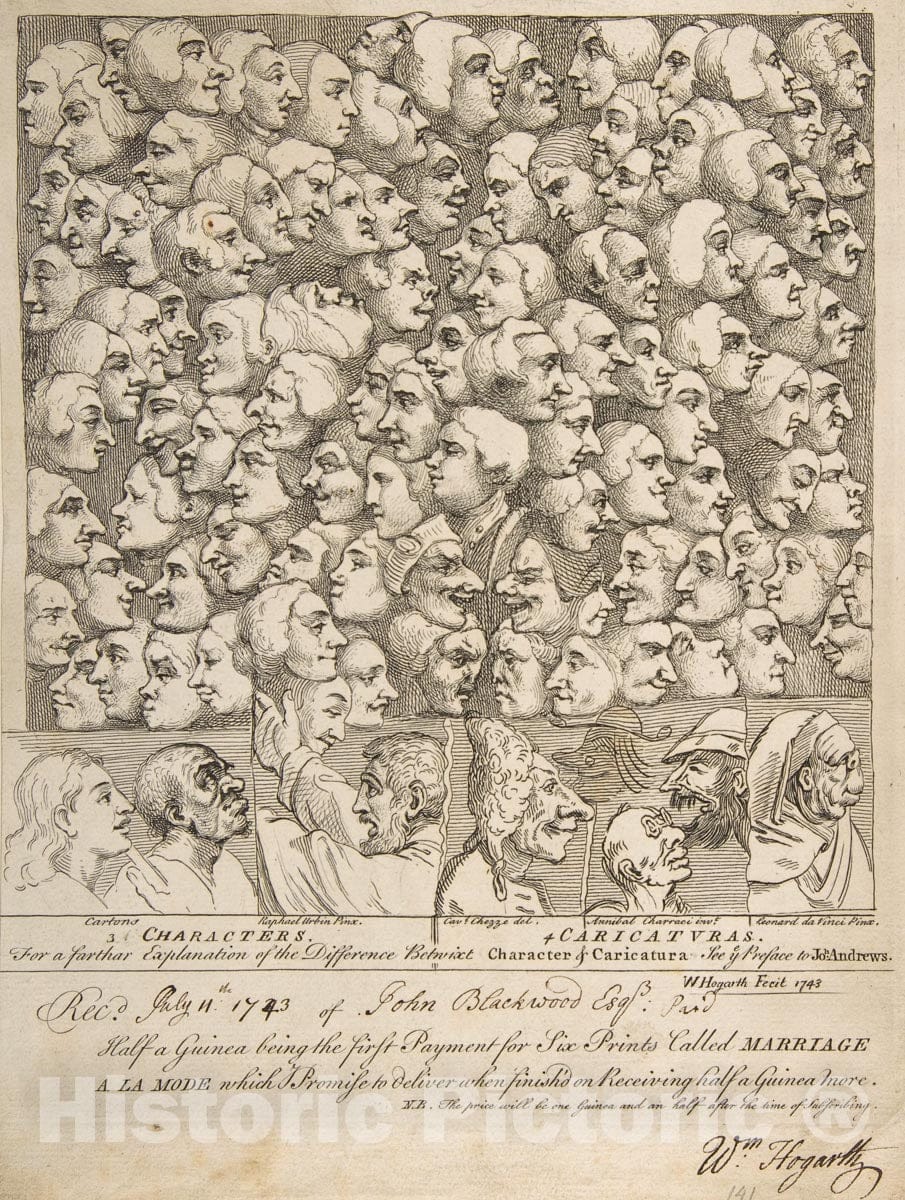 Cartons Raphael Urbin Pinx. Cavr. Chezze del. Annibal Charraci invt. Leonard da Vinci Pinx.
3 CHARACTERS. 4 CARICATVRAS.
For a farthar Explanation of the Difference Betwixt Character & Caricatura See ye Preface to Joh. Andrews.
W Hogarth Fecit 1743
Rec.d July 11.th 1743 of John Blackwood Esqr. Paid
Half a Guinea being the first Payment for Six Prints Called MARRIAGE
A LA MODE which I Promise to deliver when finish'd on Receiving half a Guinea more.
N.B. The price will be one Guinea and an half after the time of Subscribing.
Historic Pictoric
Wm. Hogarth
141